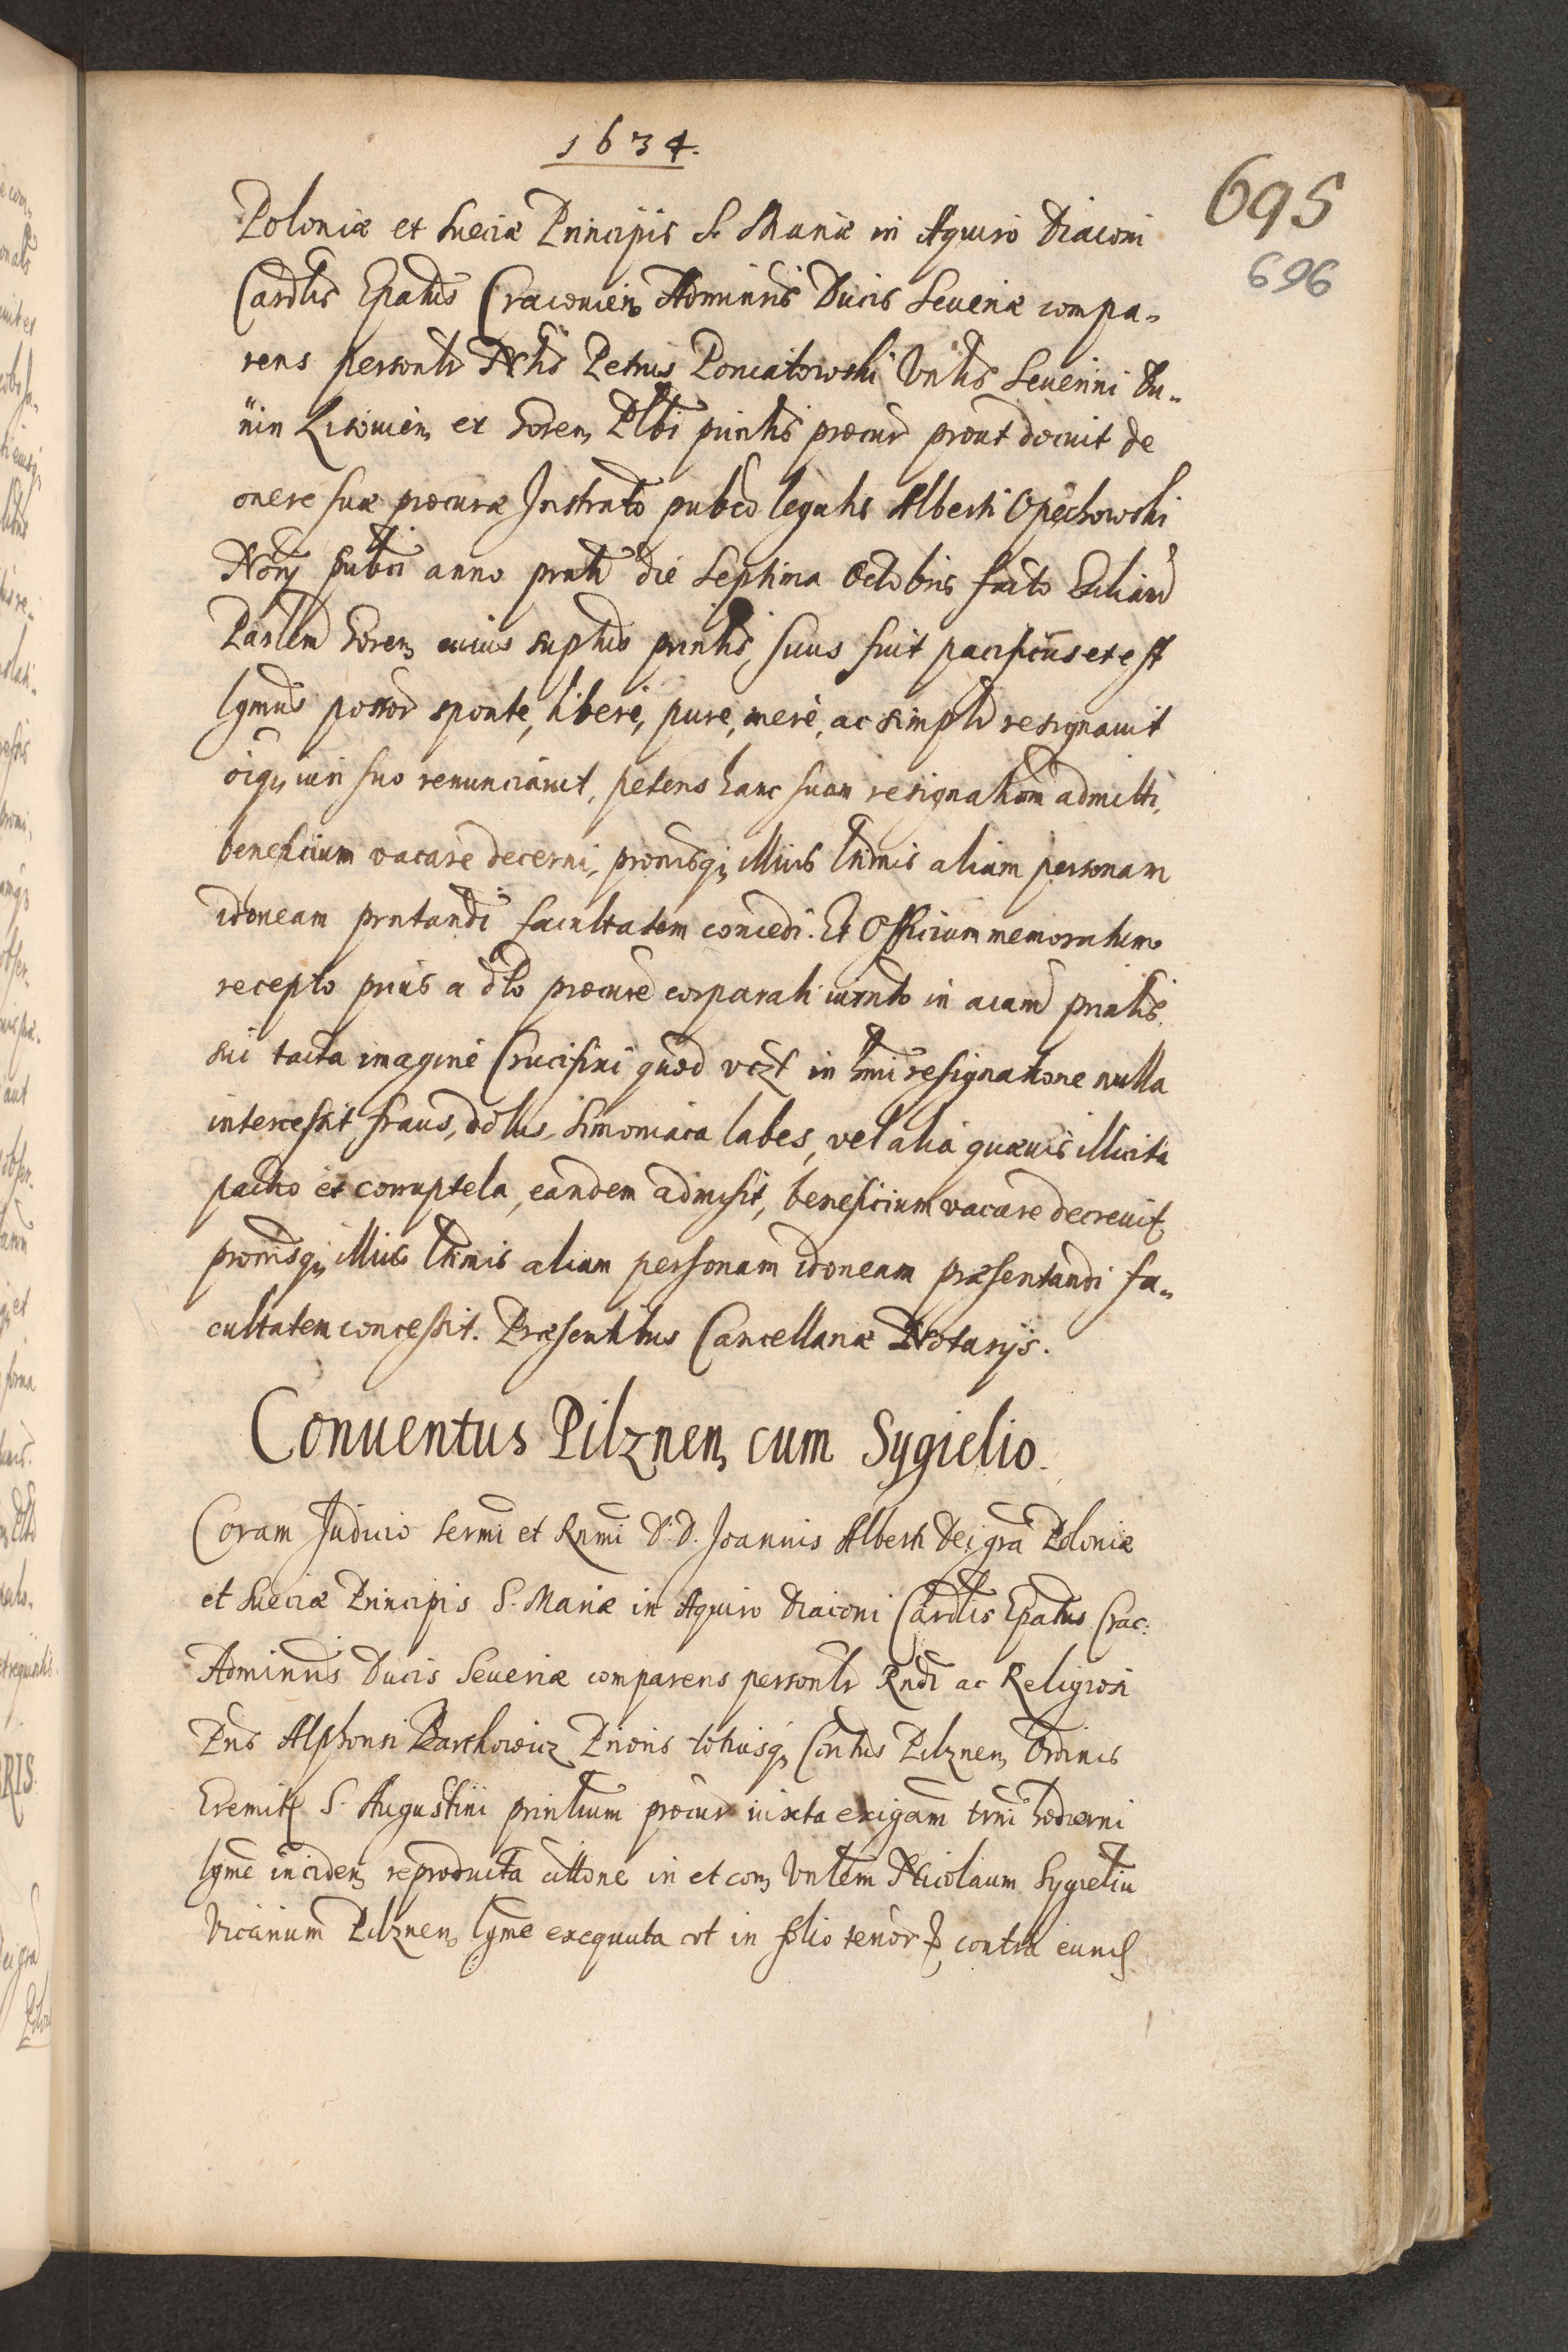 1634.
695
696
Poloniæ et Sueciæ Principis S. Mariæ in Aquiro Diaconi
Cardlis Epatus Cracovien Adminris Ducis Severiæ compa-
rens personlr Nblis Petrus Poniatowski Vnlis Severini Du-
nin Lisovien et Goren Plbi prinlis procur prout docuit de
onere suæ procuræ Instrnto pubco legalis Alberti Opęchowski
Nory pubci anno prnti die Septima Octobris facto Ecliam
Parlem Goren cuius suphus prinlis suus fuit pacificus et est
lgmus possor sponte, liberè, pure, merè, ac simplr resignavit
oiqʒ iuri suo renunciavit, petens hanc suam resignationem admitti,
beneficium vacare decerni, pronisqʒ illius ltimis aliam personam
idoneam prntandi facultatem concedi. Et Officium memoratum
recepto prius a dto procure corporali iurnto in aiam prinlis
sui tacta imaginè Crucifixi quod vczt in hmi resignatione nulla
intercessit fraus, dolus, Simoniaca labes, vel alia quævis illicita
pactio et corruptela, eandem admisit, beneficium vacare decrevit,
pronisqʒ illius ltimis aliam personam idoneam præsentandi fa-
cultatem concessit. Præsentibus Cancellariæ Notarijs.
Conuentus Pilznen cum Sygielio.
Coram Judicio Sermi et Rnmi D. D. Joannis Alberti Dei gra Poloniæ
et Sueciæ Principis S. Mariæ in Aquiro Diaconi Cardlis Epatus Crac:
Adminris Ducis Severiæ comparens personlr Rndi ac Religiosi
Pris Alphonsi Barthowicz Prioris totiusqʒ Contus Pilznen Ordinis
Eremit S. Augustini prinlium procur iuxta exigam trni hodierni
lgme incidens reproducta cittone in et con Vnlem Nicolaum Sygieliu
Vicarium Pilznen lgme exequuta ut in folio tenor contra eund